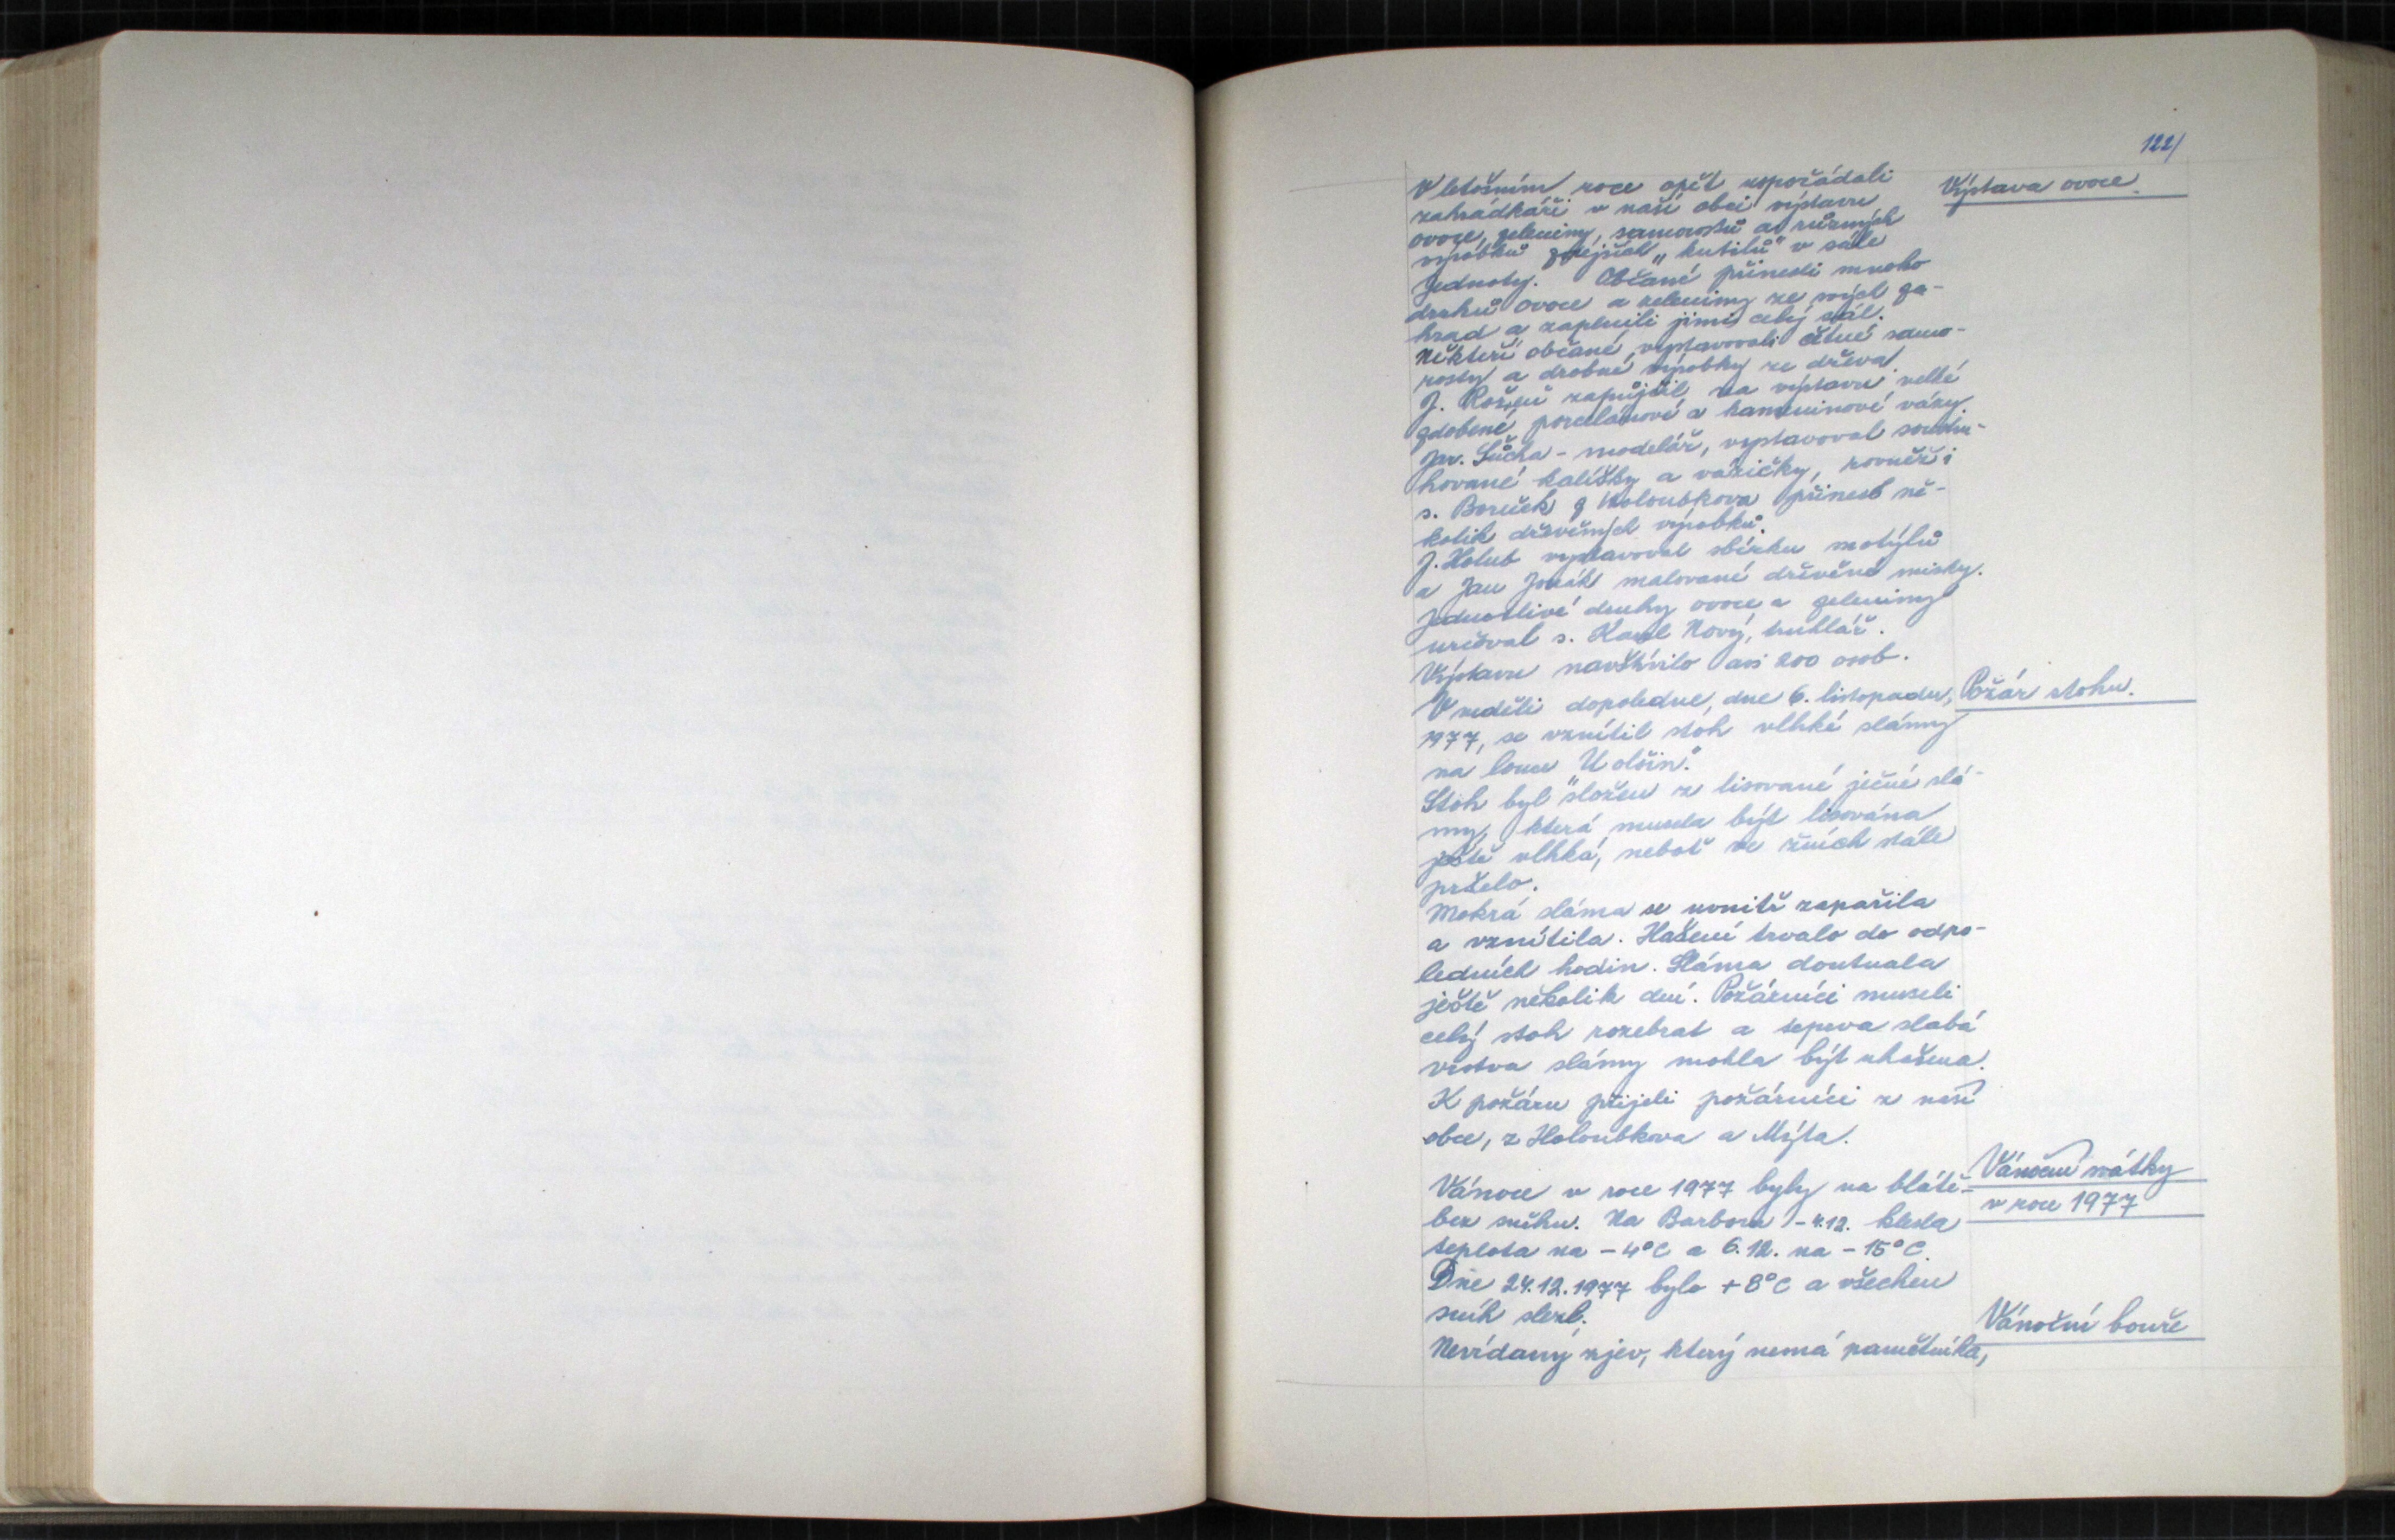 122/
V letošním roce opět uspořádali
Výstava ovoce.
zahrádkáři v naší obci výstavu
ovoce, zeleniny, samorostů a různých
výrobků zdejších „kutilů" v sále
Jednoty. Občané přinesli mnoho
druhů ovoce a zeleniny ze svých za-
hrad a zaplnili jimi celý sál.
Někteří občané vystavovali četné samo-
rosty a drobné výrobky ze dřeva.
J. zapůjčil na výstavu velké
zdobené porcelánové a kameninové vázy.
Jar. Sůcha - modelář, vystavoval soustru-
hované kalíšky a vázičky, rovněž i
s. Boruček z Holoubkova přinesl ně-
kolik dřevěných výrobků.
J. Holub vystavoval sbírku motýlů
a Jan malované dřevěné misky.
Jednotlivé druhy ovoce a zeleniny
určoval s. Karel Nový, truhlář.
Výstavu navštívilo asi 200 osob.
V neděli dopoledne, dne 6. listopadu,
Požár stohu.
1977, se vznítil stoh vlhké slámy
na louce „U olšin".
Stoh byl složen z lisované ječné slá-
my, která musela být lisována
ještě vlhká, neboť ve žních stále
pršelo.
Mokrá sláma se uvnitř zapařila
a vznítila. Hašení trvalo do odpo-
ledních hodin. Sláma doutnala
ještě několik dní. Požárníci museli
celý stoh rozebrat a teprve slabá
vrstva slámy mohla být uhašena.
K požáru přijeli požárníci z naší
obce, z Holoubkova a Mýta.
Vánoce v roce 1977 byly na blátě -
Vánoční svátky
v roce 1977
bez sněhu. Na Barboru - 4.12. klesla
teplota na - 4°C a 6.12. na - 15°C.
Dne 24.12.1977 bylo + 8°C a všechen
sníh slezl.
Vánoční bouře
Nevídaný zjev, který nemá pamětníka,